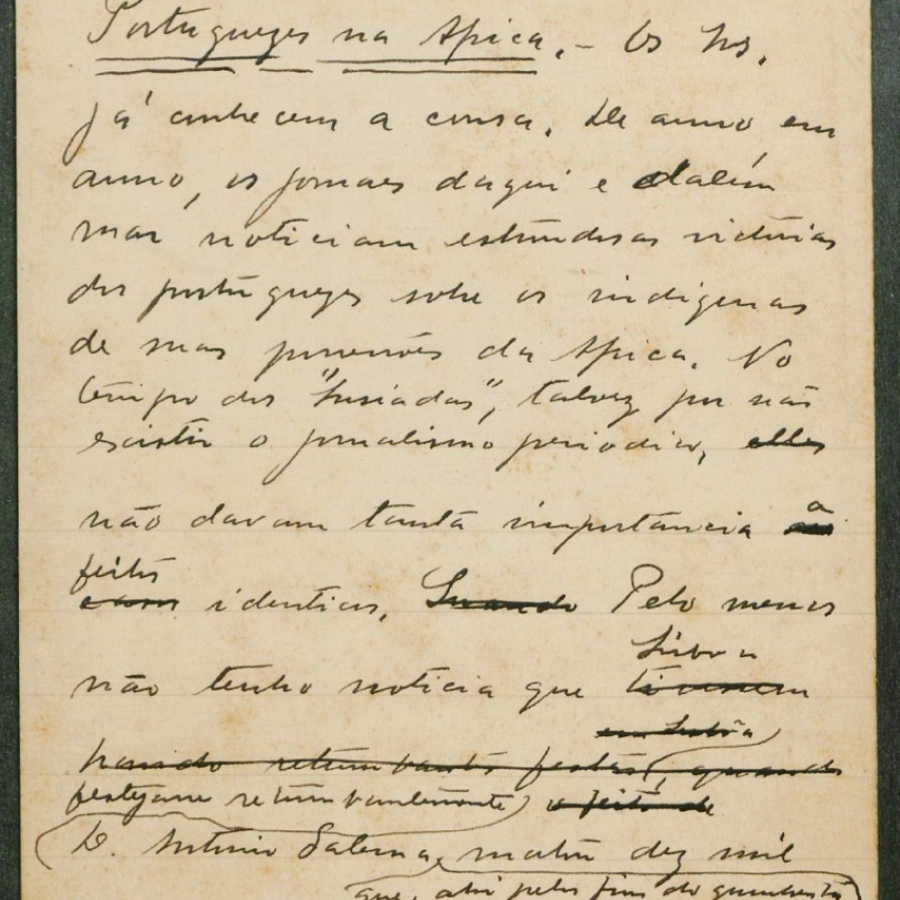 Portuguezes na Africa. – Os hs.
já conhecem a cousa. De anno em
anno, os jornaes daqui e dalém
mar noticiam estrondosas victorias
dos portuguezes sobre os indigenas
de suas possessões da Africa. No
tempo dos "Lusiadas", talvez por não
existir o jornalismo periodico, elles
não davam tanta importancia a
feitos
casos identicos. Quando Pelo menos
Lisboa
não tenho noticia que tivessem
em Lisbôa
havido retumbantes festas, quando
festejasse retumbantemente o feito de
D. Antonio Salema, matou dez mil
que, ahi pelos fins do quinhentos